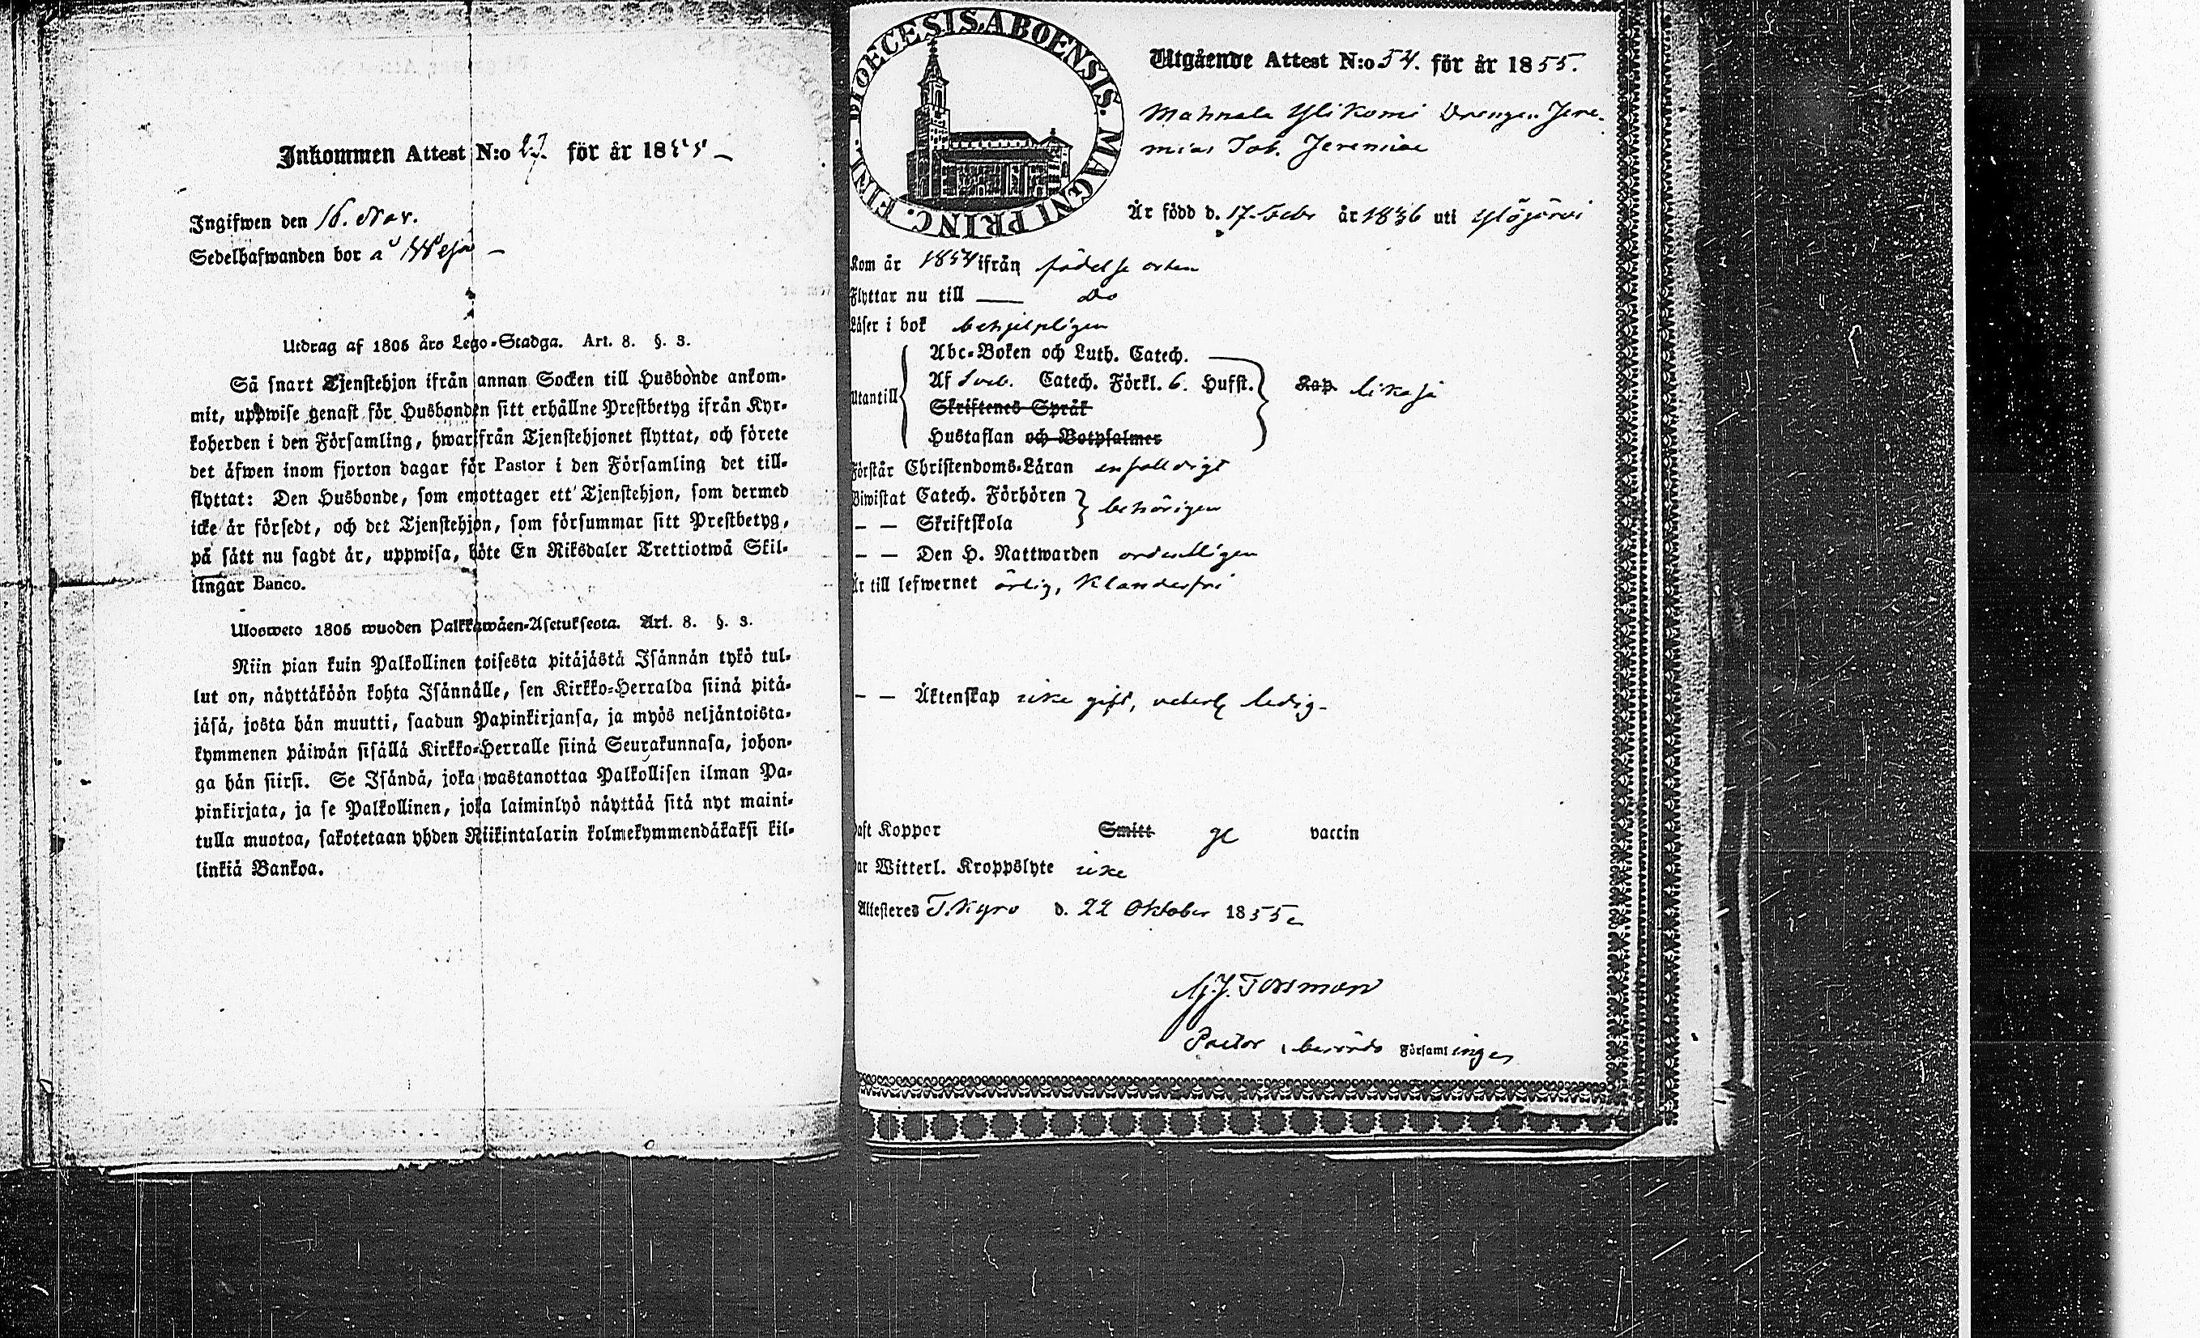 Inkommen Attest N:o 27. för år 1855 –
Ingifwen den 16. Nov.
Sedelhafwanden bor å
Utdrag af 1805 års Lego-Stadga. Art. 8. §. 3.
Så snart Tjenstehjon ifrån annan Socken till Husbonde ankom-
mit, uppwise genast för Husbonden sitt erhållne Prestbetyg ifrån Kyr-
koherden i den Församling, hwarifrån Tjenstehjonet flyttat, och förete
det äfwen inom fjorton dagar för Pastor i den Församling det till-
flyttat: Den Husbonde, som emottager ett Tjenstehjon, som dermed
icke är försedt, och det Tjenstehjon, som försummar sitt Prestbetyg,
på sätt nu sagdt är, uppwisa, böte En Riksdaler Trettiotwå Skil-
lingar Banco.
Ulosweto 1805 wuoden Palkkawäen-Asetuksesta. Art. 8. §. 3.
Niin pian kuin Palkollinen toisesta pitäjästä Isännän tykö tul-
lut on, näyttäköön kohta Isännälle, sen Kirkko-Herralda siinä pitä-
jäsä, josta hän muutti, saadun Papinkirjansa, ja myös neljäntoista-
kymmenen päiwän sisällä Kirkko-Herralle siinä Seurakunnasa, johon-
ga hän siirsi. Se Isändä, joka wastanottaa Palkollisen ilman Pa-
pinkirjata, ja se Palkollinen, joka laiminlyö näyttää sitä nyt maini-
tulla muotoa, sakotetaan yhden Riikintalarin kolmekymmendäkaksi kil-
linkiä Bankoa.
DIOECESIS. ABOENSIS. MAGNI PRINC. FINL.
Utgående Attest N:o 54. för år 1855.
Mahnala Ylikomi Drengen Jere-
mias Tob. Jeremiae
Är född d. 17. Febr år 1836 uti Ylöjärvi
Kom år 1854 ifrån födelse orten
Flyttar nu till —— Do
Läser i bok behjelpligen
Utantill
Abc-Boken och Luth. Catech.
Af Sveb. Catech. Förkl. 6. Hufst. Kap. likaså
Skriftenes Språk
Hustaflan och Botpsalmer
Förstår Christendoms-Läran enfaldigt
Biwistat Catech. Förhören behörigen
– – Skriftskola
– – Den H. Nattwarden ordentligen
Är till lefwernet ärlig, klanderfri
– – Äktenskap icke gift, veterl. ledig.
Haft Koppor Smitt ge vaccin
Har Witterl. Kroppslyte icke
Attesteres T. Kyro d. 22 Oktober 1855
Forsman
Pastor i berörde Församlingen